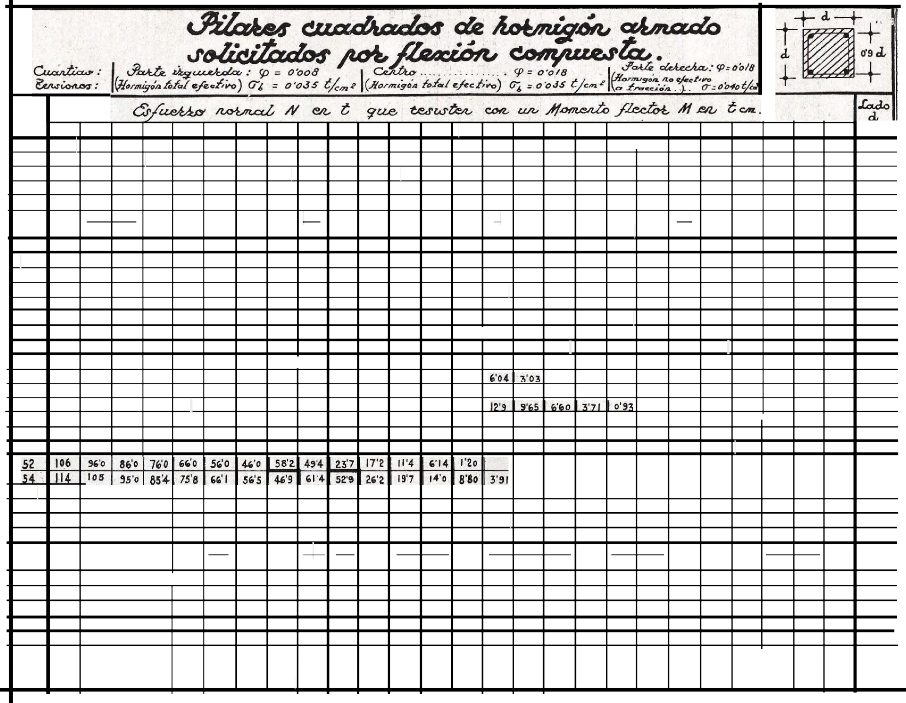 Pilares cuadrados de hormigón armado
solicitados por flexión compuesta.
Cuantías: Parte izquierda: φ = 0'008 Centro ............ φ = 0'018 Parte derecha: φ=0'018
Tensiones: (Hormigón total efectivo) σb = 0'035 t/cm² (Hormigón total efectivo) σb = 0'035 t/cm² (Hormigón no efectivo a tracción..) σ=0'040 t/cm
d
d
0'9 d
Esfuerzo normal N en t que resisten con un Momento flector M en t cm.
Lado d
6'04 3'03
12'9 9'65 6'60 3'71 0'93
52 106 96'0 86'0 76'0 66'0 56'0 46'0 58'2 49'4 23'7 17'2 11'4 6'14 1'20
54 114 105 95'0 85'4 75'8 66'1 56'5 46'9 61'4 52'9 26'2 19'7 14'0 8'80 3'91